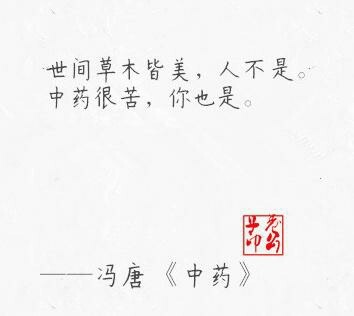 世间草木皆美，人不是。
中药很苦，你也是。
——冯唐《中药》